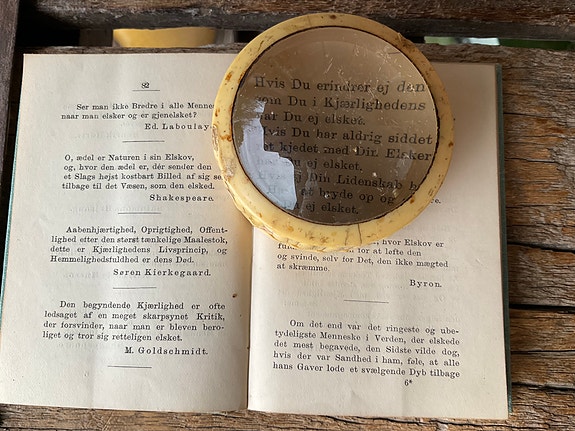 82
Ser man ikke Bredre i alle Menne
naar man elsker og er gjenelsket?
Ed. Laboulay
O, ædel er Naturen i sin Elskov,
og, hvor den ædel er, dér sender den
et Slags højst kostbart Billed af sig se
tilbage til det Væsen, som den elsked.
Shakespeare.
Aabenhjærtighed, Oprigtighed, Offent-
lighed efter den størst tænkelige Maalestok,
dette er Kjærlighedens Livsprincip, og
Hemmelighedsfuldhed er dens Død.
Søren Kierkegaard.
Den begyndende Kjærlighed er ofte
ledsaget af en meget skarpsynet Kritik,
der forsvinder, naar man er bleven bero-
liget og tror sig retteligen elsket.
M. Goldschmidt.
Hvis Du erindrer ej den
som Du i Kjærlighedens
var Du ej elsket.
Hvis Du har aldrig siddet
at kjedet med Din Elsker
Du ej elsket.
ej Din Lidenskab
at bryde op og
du ej elsket.
hvor Elskov er
for at løfte den
og svinde, selv for Det, den ikke mægted
at skræmme.
Byron.
Om det end var det ringeste og ube-
tydeligste Menneske i Verden, der elskede
det mest begavede, den Sidste vilde dog,
hvis der var Sandhed i ham, føle, at alle
hans Gaver lode et svælgende Dyb tilbage
6*